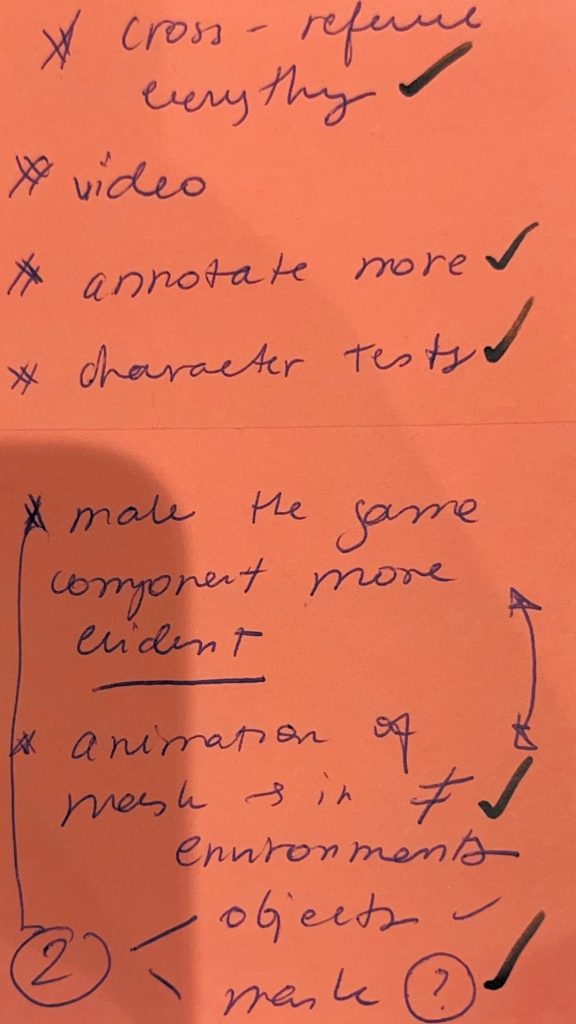 * cross - reference
everything ✓
* video
* annotate more ✓
* character tests ✓
* make the game
component more
evident
* animation of
mask → in ≠ ✓
environments
② < objects ✓
mask ? ✓